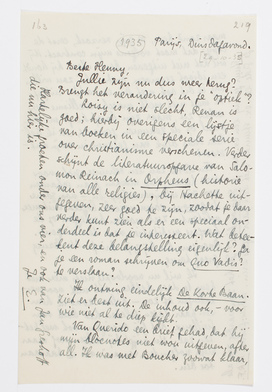 163
219
(1935) Parijs, Dinsdagavond.
Beste Henny,
Jullie zijn nu dus weer terug?
Brengt het verandering in je "optiek"?
Roisy is niet slecht, Renan is
goed; hierbij overigens een lijstje
van boeken in een speciale serie
over christianisme verschenen. Verder
schijnt de literatuuropgave van Salo-
mon Reinach in Orpheus (histoire
van alle religies), bij Hachette uit-
gegeven, zeer goed te zijn, zoodat je dan
verder kunt zien als er een speciaal on-
derdeel is dat je interesseert. Wat betee-
kent deze belangstelling eigenlijk? Ga
je een roman schrijven om Quo Vadis?
te verslaan?
Ik ontving eindelijk De Korte Baan.
Ziet er best uit. De inhoud ook, - voor
wie niet al te diep kijkt.
Van Querido een brief gehad, dat hij
mijn bloknotes niet wou uitgeven, after
all. Ik was met Boucher zoowat klaar,
Hartelijke groeten onder ons vier, en ook van
die nu hier is.
Je E.